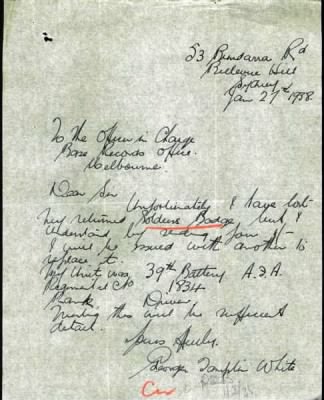 53 Bundarra Rd
Bellevue Hill
Sydney
Jan 27th 1938.
To The Officer in Charge
Base Records Office.
Melbourne
Dear Sir
Unfortunately I have lost
my returned Soldiers Badge, but I
understand by writing you
I will be issued with another to
replace it.
My Unit was 39th Battery A.F.A.
Regimental No 1834
Rank. Driver.
Trusting this will be sufficient
detail.
Yours Truly.
George Tamplin White